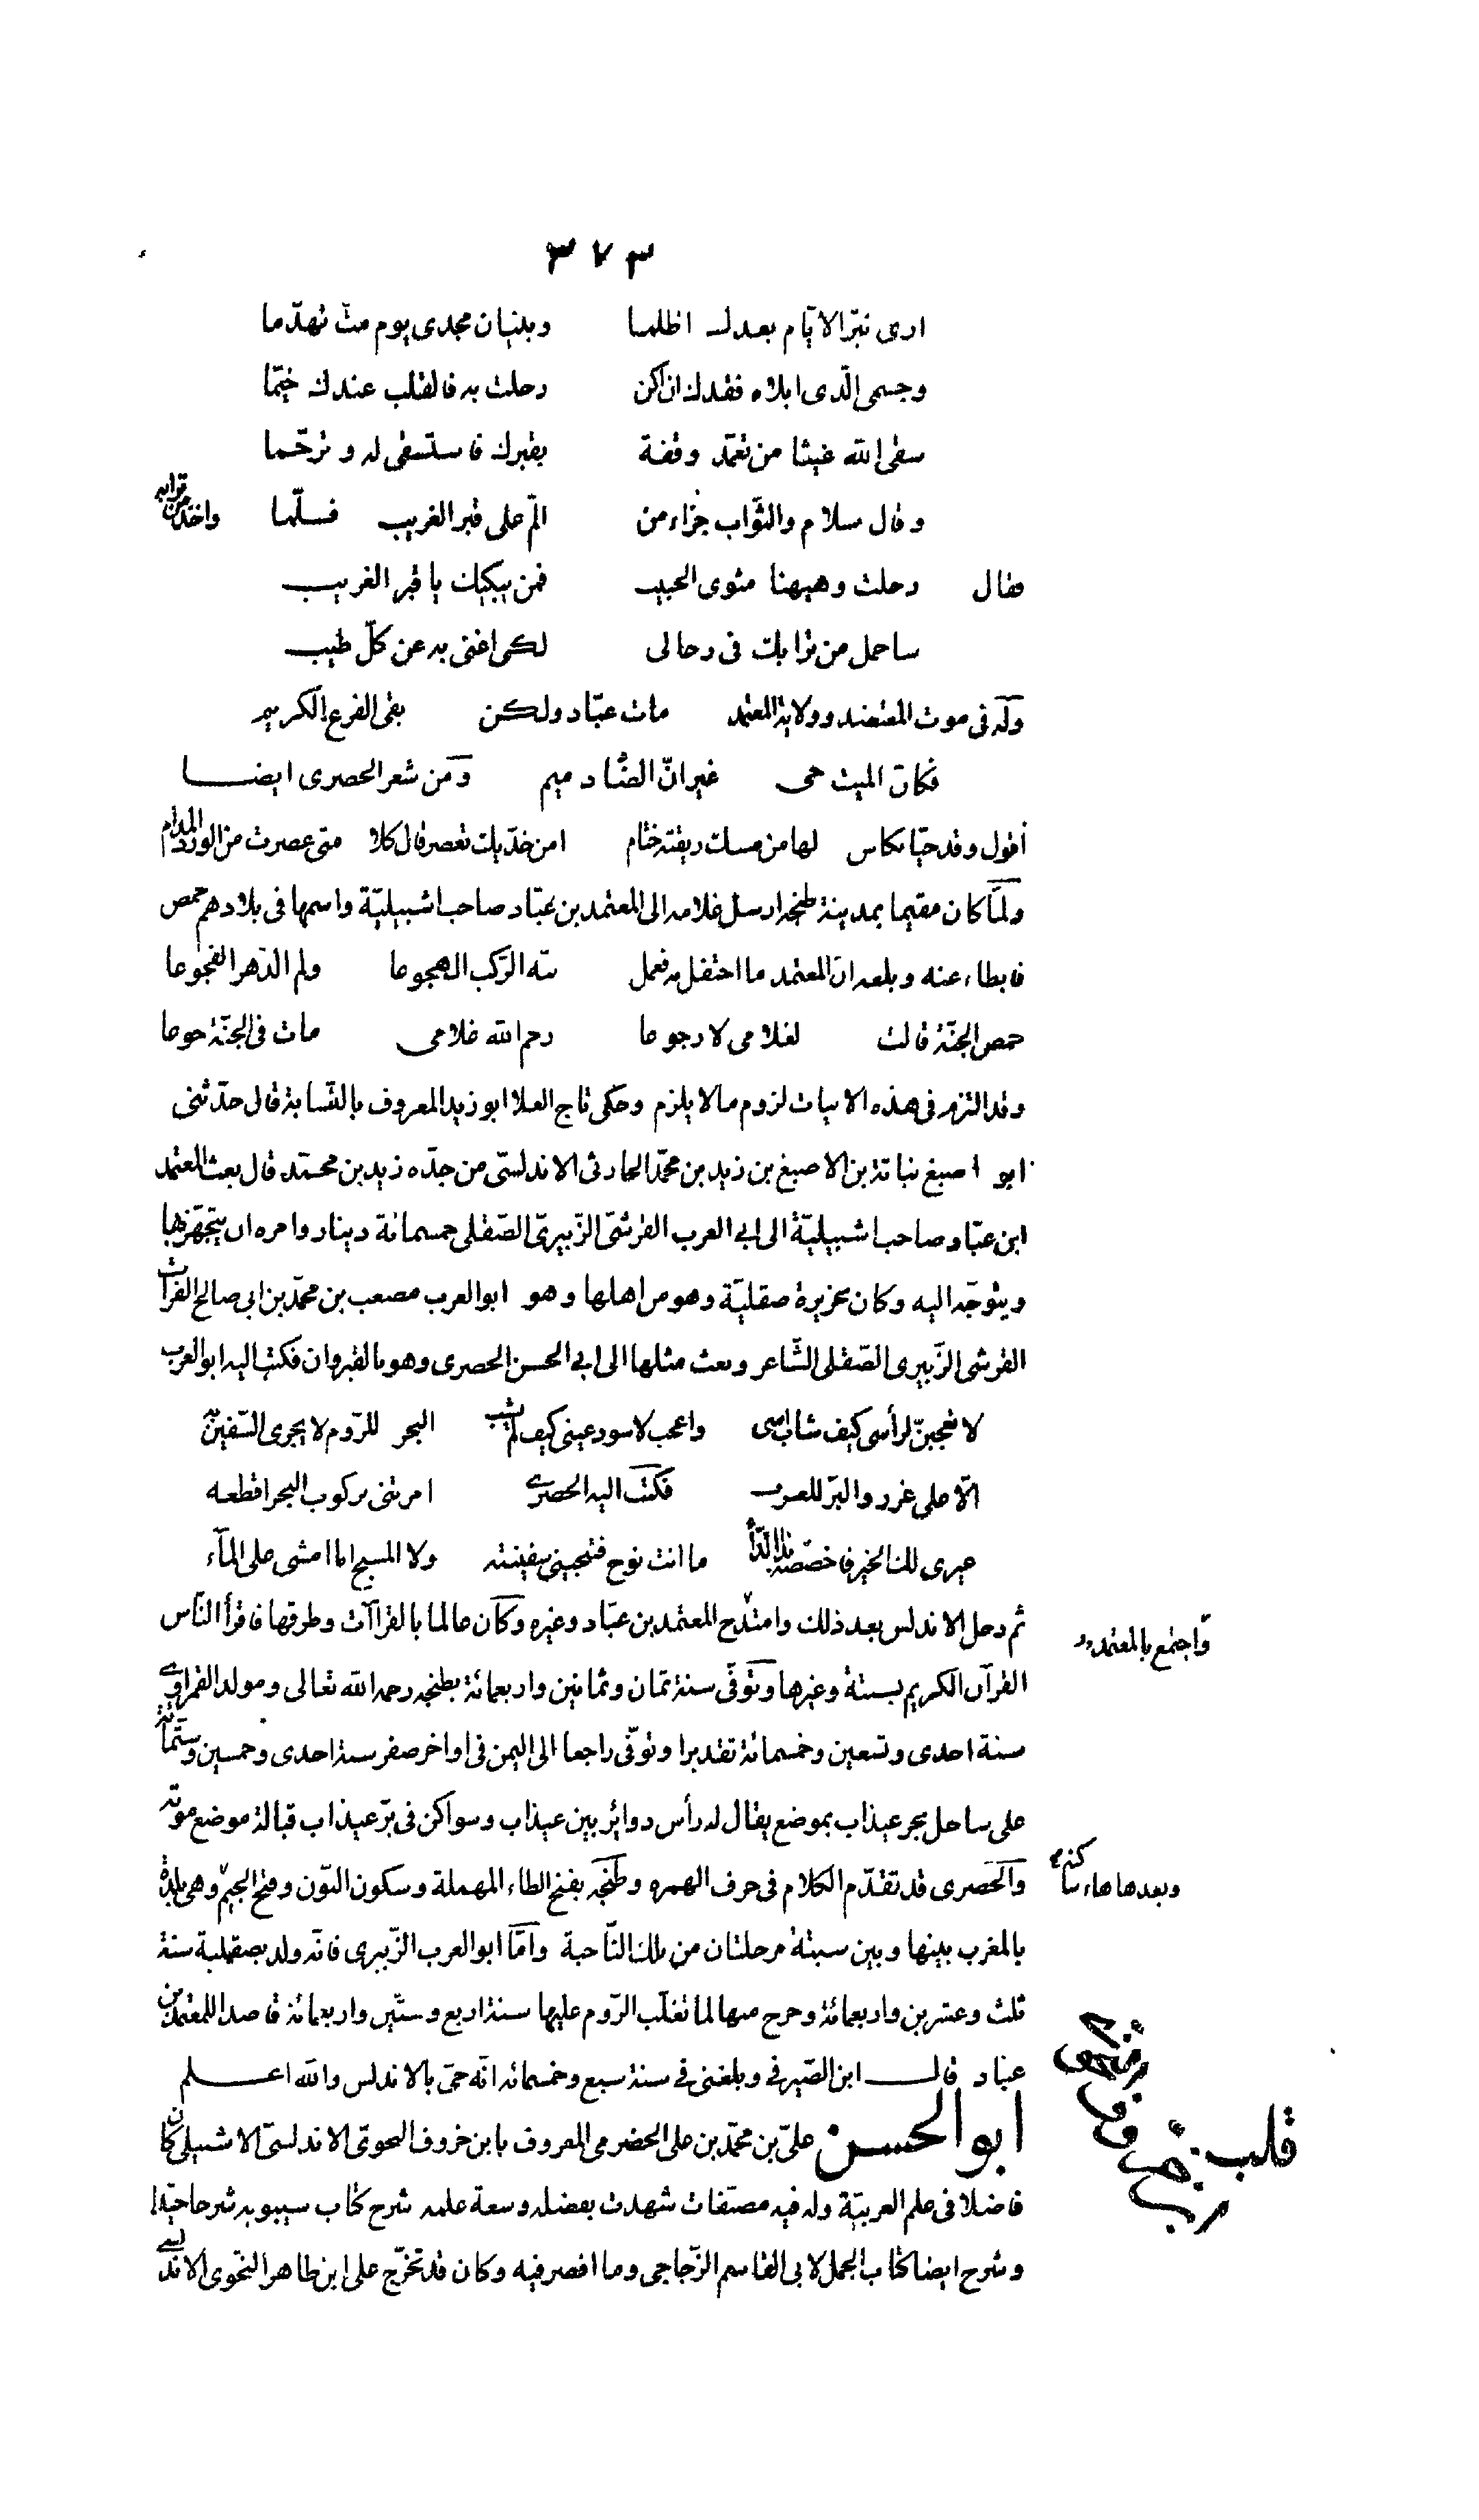 ٣٧٣
ارى نيّر الايّام بعدك اظلما وبنيان مجدى يوم متّ تهدّما
وجسمى الّذى ابلاه فقدك ان اكن رحلت به فالقلب عندك خيّما
سقى الله غيثا من تعمّد وقفة بقبرك فاستسقى له وترحّما
وقال سلام والثّواب جزاء من المّ على قبر الغريب فسلّما واخذ من ترابه
فقال رحلت وهيهنا مثوى الحبيب فمن يبكيك يا قبر الغريب
ساحمل من ترابك فى رحالى لكى اغنى به عن كلّ طيب
وله فى موت المعتضد وولاية المعتمد مات عبّاد ولكن بقى الفرع الكريم
فكانّ الميت حى غير انّ الضّاد ميم ومن شعر الحصرى ايضا
اقول وقد حيّا بكاس لها من مسك ريقته ختام امن خدّيك تعصر قال كلا متى عصرت من الورد المدام
ولمّا كان مقيما بمدينة طنجه ارسل غلامه الى المعتمد بن عبّاد صاحب اشبيليّة واسمها فى بلادهم حمص
فابطاء عنه وبلغه انّ المعتمد ما احتفل به فعمل نبّه الرّكب الهجوعا ولم الدّهر الفجوعا
حمص الجنّة قالت لغلامى لا رجوعا رحم الله غلامى مات فى الجنّة جوعا
وقد التزم فى هذه الابيات لزوم ما لا يلزم وحكى تاج العلا ابو زيد المعروف بالنّسابة قال حدّثنى
ابو اصبغ نباتة بن الاصبغ بن زيد بن محمّد الحارثى الاندلسىّ من جدّه زيد بن محمّد قال بعث المعتمد
ابن عبّاد صاحب اشبيليّة الى ابى العرب القرشىّ الزّبيرىّ الصّقلى خمسمائة دينار وامره ان يتجهّز بها
ويتوجّه اليه وكان بجزيرة صقليّة وهو من اهلها وهو ابو العرب مصعب بن محمّد بن ابى صالح الفرات
القرشى الزّبيرى الصّقلى الشّاعر وبعث مثلها الى ابى الحسن الحصرى وهو بالقيروان فكتب اليه ابو العرب
لا تعجبنّ لرأسى كيف شاب اسى واعجب لاسود عينى كيف لم يشب البحر للرّوم لا يجرى السّفين به
الّا على غرر والبرّ للعرب فكتب اليه الحصرى امرتنى بركوب البحر اقطعه
غيرى لك الخير فاخصصه بذا الدّاء ما انت نوح فتنجينى سفينته ولا المسيح انا امشى على الماء
ثم دخل الاندلس بعد ذلك وامتدح المعتمد بن عبّاد وغيره وكان عالما بالقراآت وطرقها فاقرأ النّاس
واجتمع بالمعتمد
القرآن الكريم بسبتة وغيرها وتوفّى سنة ثمان وثمانين واربعمائة بطنجه رحمه الله تعالى ومولد القمراوى
سنة احدى وتسعين وخمسمائة تقديرا وتوفّى راجعا الى اليمن فى اواخر صفر سنة احدى وخمسين وستّمائة
على ساحل بحر عيذاب بموضع يقال له رأس دوائر بين عيذاب وسواكن فى برّ عيذاب قبالة موضع موته
والحصرى قد تقدّم الكلام فى حرف الهمزه وطنجه بفتح الطاء المهملة وسكون النّون وفتح الجيم وهى بلدة
وبعدها هاء ساكنه
بالمغرب بينها وبين سبتة مرحلتان من تلك النّاحية وامّا ابو العرب الزّبيرى فانّه ولد بصقلية سنة
ثلث وعشرين واربعمائة وخرج منها لما تغلّب الرّوم عليها سنة اربع وستّين واربعمائة قاصدا للمعتمد بن
عباد قال ابن الصّيرفى وبلغنى فى سنة سبع وخمسمائه انّه حىّ بالاندلس والله اعلم
ابو الحسن علىّ بن محمّد بن على الحضرمى المعروف بابن خروف النحوىّ الاندلسىّ الاشبيلى كان
فاضلا فى علم العربيّة وله فيه مصنّفات شهدت بفضله وسعة علمه شرح كتاب سيبويه شرحا جيّدا
وشرح ايضا كتاب الجمل لابى القاسم الزّجاجى وما اقصر فيه وكان قد تخرّج على ابن طاهر النّحوى الاندلسى